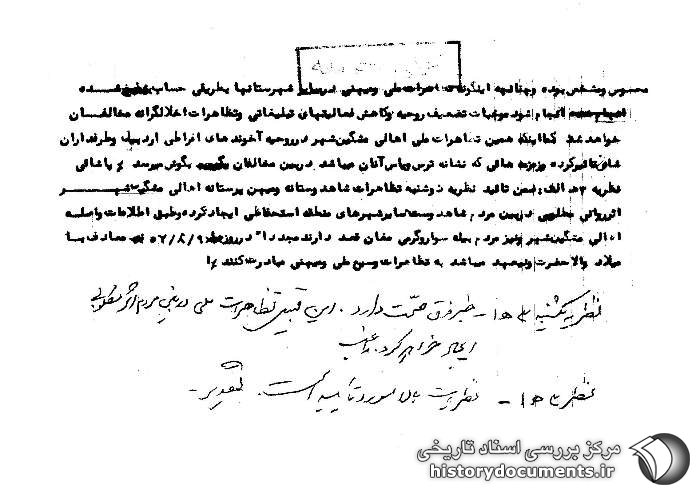 محسوس ومشخص بوده وچنانچه اینگونه تظاهرات ملی ومیهنی درسایر شهرستانها بطریقی حساب شده
انجام شود موجبات تضعیف روحیه وکاهش فعالیتهای تبلیغاتی وتظاهرات اخلالگرانه مخالفان
خواهد شد کما اینکه همین تظاهرات ملی اهالی مشگین شهر درروحیه آخوند های افراطی اردبیل وطرفداران
شان تاثیرکرده و زمزمه هائی که نشانه ترس ویاس آنان میباشد دربین مخالفان بگوش میرسد
نظریه ۳ ه الف : ضمن تائید نظریه دوشنبه تظاهرات شاهدوستانه ومیهن پرستانه اهالی مشگین شهر
اثرروانی مطلوبی دربین مردم شاهدوست سایر شهرهای منطقه استحفاظی ایجاد کرده وطبق اطلاعات واصله
اهالی مشگین شهر ونیز مردم بیله سواروگرمی مغان قصد دارند مجددا" درروز که مصادف با
میلاد والاحضرت ولیعهد میباشد به تظاهرات وسیع ملی ومیهنی مبادرت کنند
نظریه یکشنبه ۳ ه ۱ - خبر فوق صحت دارد. این قبیل تظاهرات ملی در بین مردم اثر مطلوبی
ایجاد خواهد کرد.
نظریه ۳ ه ۱ - نظریات بالا مورد تایید است.
مرکز بررسی اسناد تاریخی
historydocuments.ir